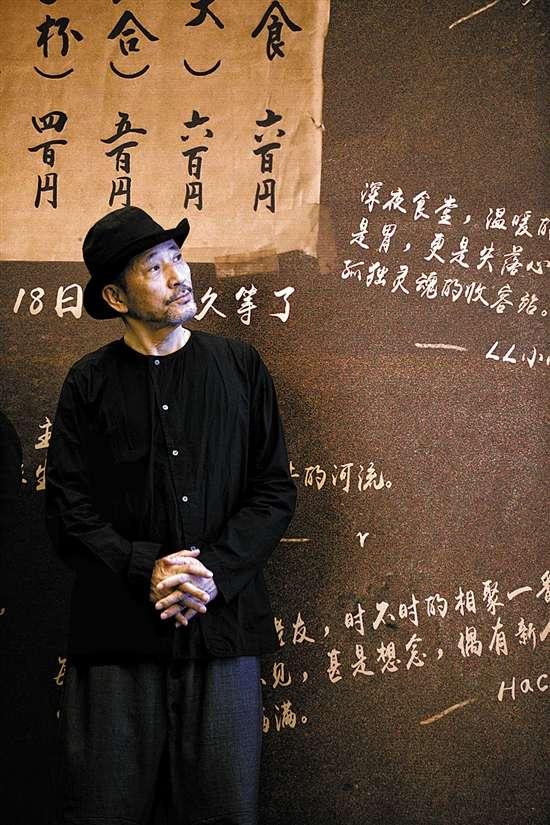 食
六百円
大）
六百円
合）
五百円
杯）
四百円
深夜食堂，温暖的
是胃，更是失落心
孤独灵魂的收容站。
— LL小
18日 久等了
主
生 的河流。
— r
老友，时不时的相聚一
每 见，甚是想念，偶有新
满。
— Hac